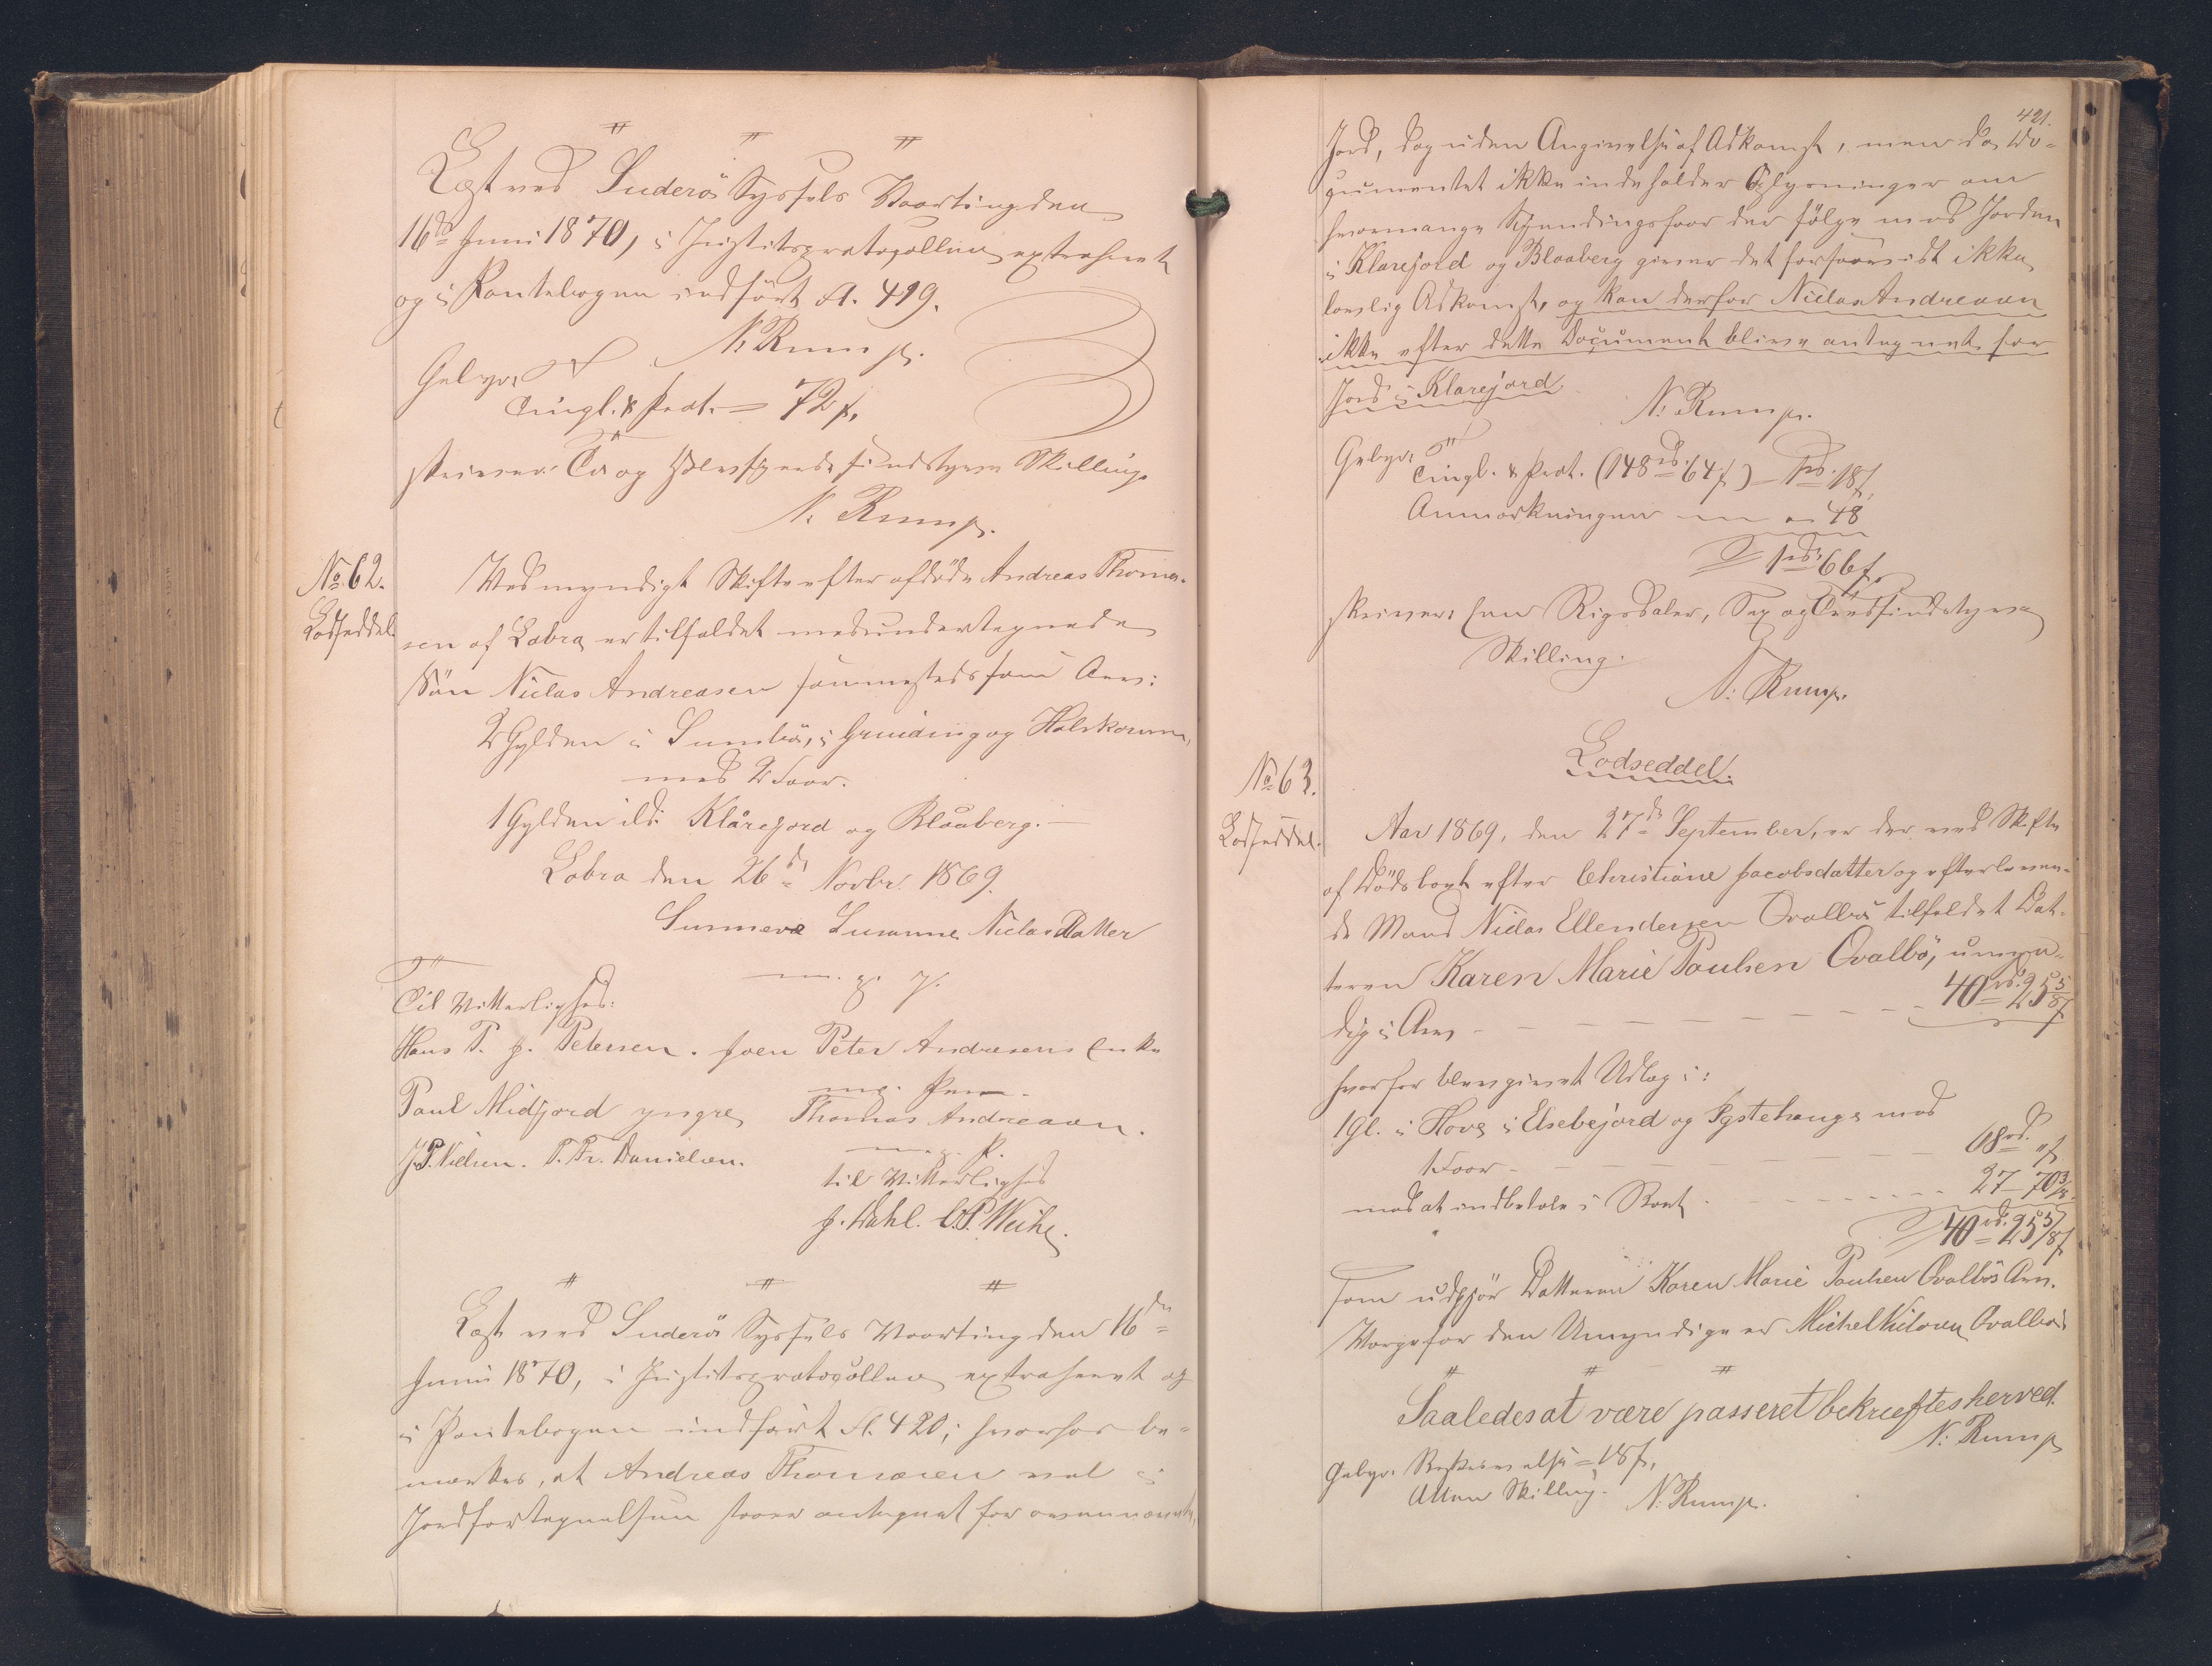 Læst ved Suderö Syssels Vaarting den
16de Juni 1870, i Justitsprotocollen extraheret
og i Pantebogen indført Fl. 419.
N. Rump.
Gebyr:
Tingl. & Prot. = 72 f.
skriver: To og Halvfjerdsindstyve Skilling.
N. Rump.
No 62.
Lodseddel.
Ved myndigt Skifte efter afdøde Andreas Thoma-
sen af Lobra er tilfaldet medundertegnede
Søn Niclas Andreasen sammesteds som Arv:
2 Gylden i Sumbö, i Gruiding og Halskorum,
med 2 Foor.
1 Gylden i Klårejord og Blåaberg. —
Lobra den 26de Novbr. 1869.
Sunneva Susanne NiclasDatter
m. p. P.
Til Vitterlighed:
Hans P. J. Petersen. Joen Peter Andreasens Enke
m. Pen.
Paul Midjord yngre Thomas Andreasen.
m. p. P.
J. P. Nielsen. P. Fr. Danielsen.
til Vitterlighed
J. Dahl. C. P. Weihe.
Læst ved Suderö Syssels Vaarting den 16de
Juni 1870, i Justitsprotocollen extraheret og
i Pantebogen indført Fl. 420; hvorhos be-
mærkes, at Andreas Thomasen vel i
Jordfortegnelsen staaer antegnet for ovennævnte
421.
Jord, dog uden Angivelse af Adkomst, men da Do-
cumentet ikke indeholder Oplysninger om
hvormange Skjendingsfoor der følge med Jorden
i Klarejord og Blaaberg giver det forsaavidt ikke
lovlig Adkomst, og kan derfor Niclas Andreasen
ikke efter dette Document blive antegnet for
Jord i Klarejord.
N. Rump.
Gebyr:
Tingl. & Prot. (148 rd. 64 f) — 1 rd. 18 f,
Anmærkningen — „ 48
1 rd. 66 f.
skriver: Een Rigsdaler, Sex og Tredsindstyve
Skilling.
N: Rump.
No 63.
Lodseddel.
Lodseddel.
Aar 1869, den 27de September, er der ved Skifte
af Dødsboet efter Christiane Jacobsdatter og efterleven-
de Mand Niclas Ellendersen Qvalbö tilfaldet Dat-
teren Karen Marie Poulsen Qvalbö, umyn-
dig i Arv — — — — — 40 rd. 25 5/8 f
hvorfor blev givet Udlæg i:
1 Gl. i Hove i Elsebejord og Systehauge med
1 Foor — — — — — 68 rd. „ f
med at indbetale i Boet — — — 27 – 70 3/8
40 rd. 25 5/8 f
som udgjör Datteren Karen Marie Poulsen Qvalbös Arv.
Værge for den Umyndige er Michel Vilsen Qvalbö.
Saaledes at være passeret bekræftes herved.
N: Rump
Gebyr: Beskrivelse = 18 f,
Atten Skilling. N. Rump.